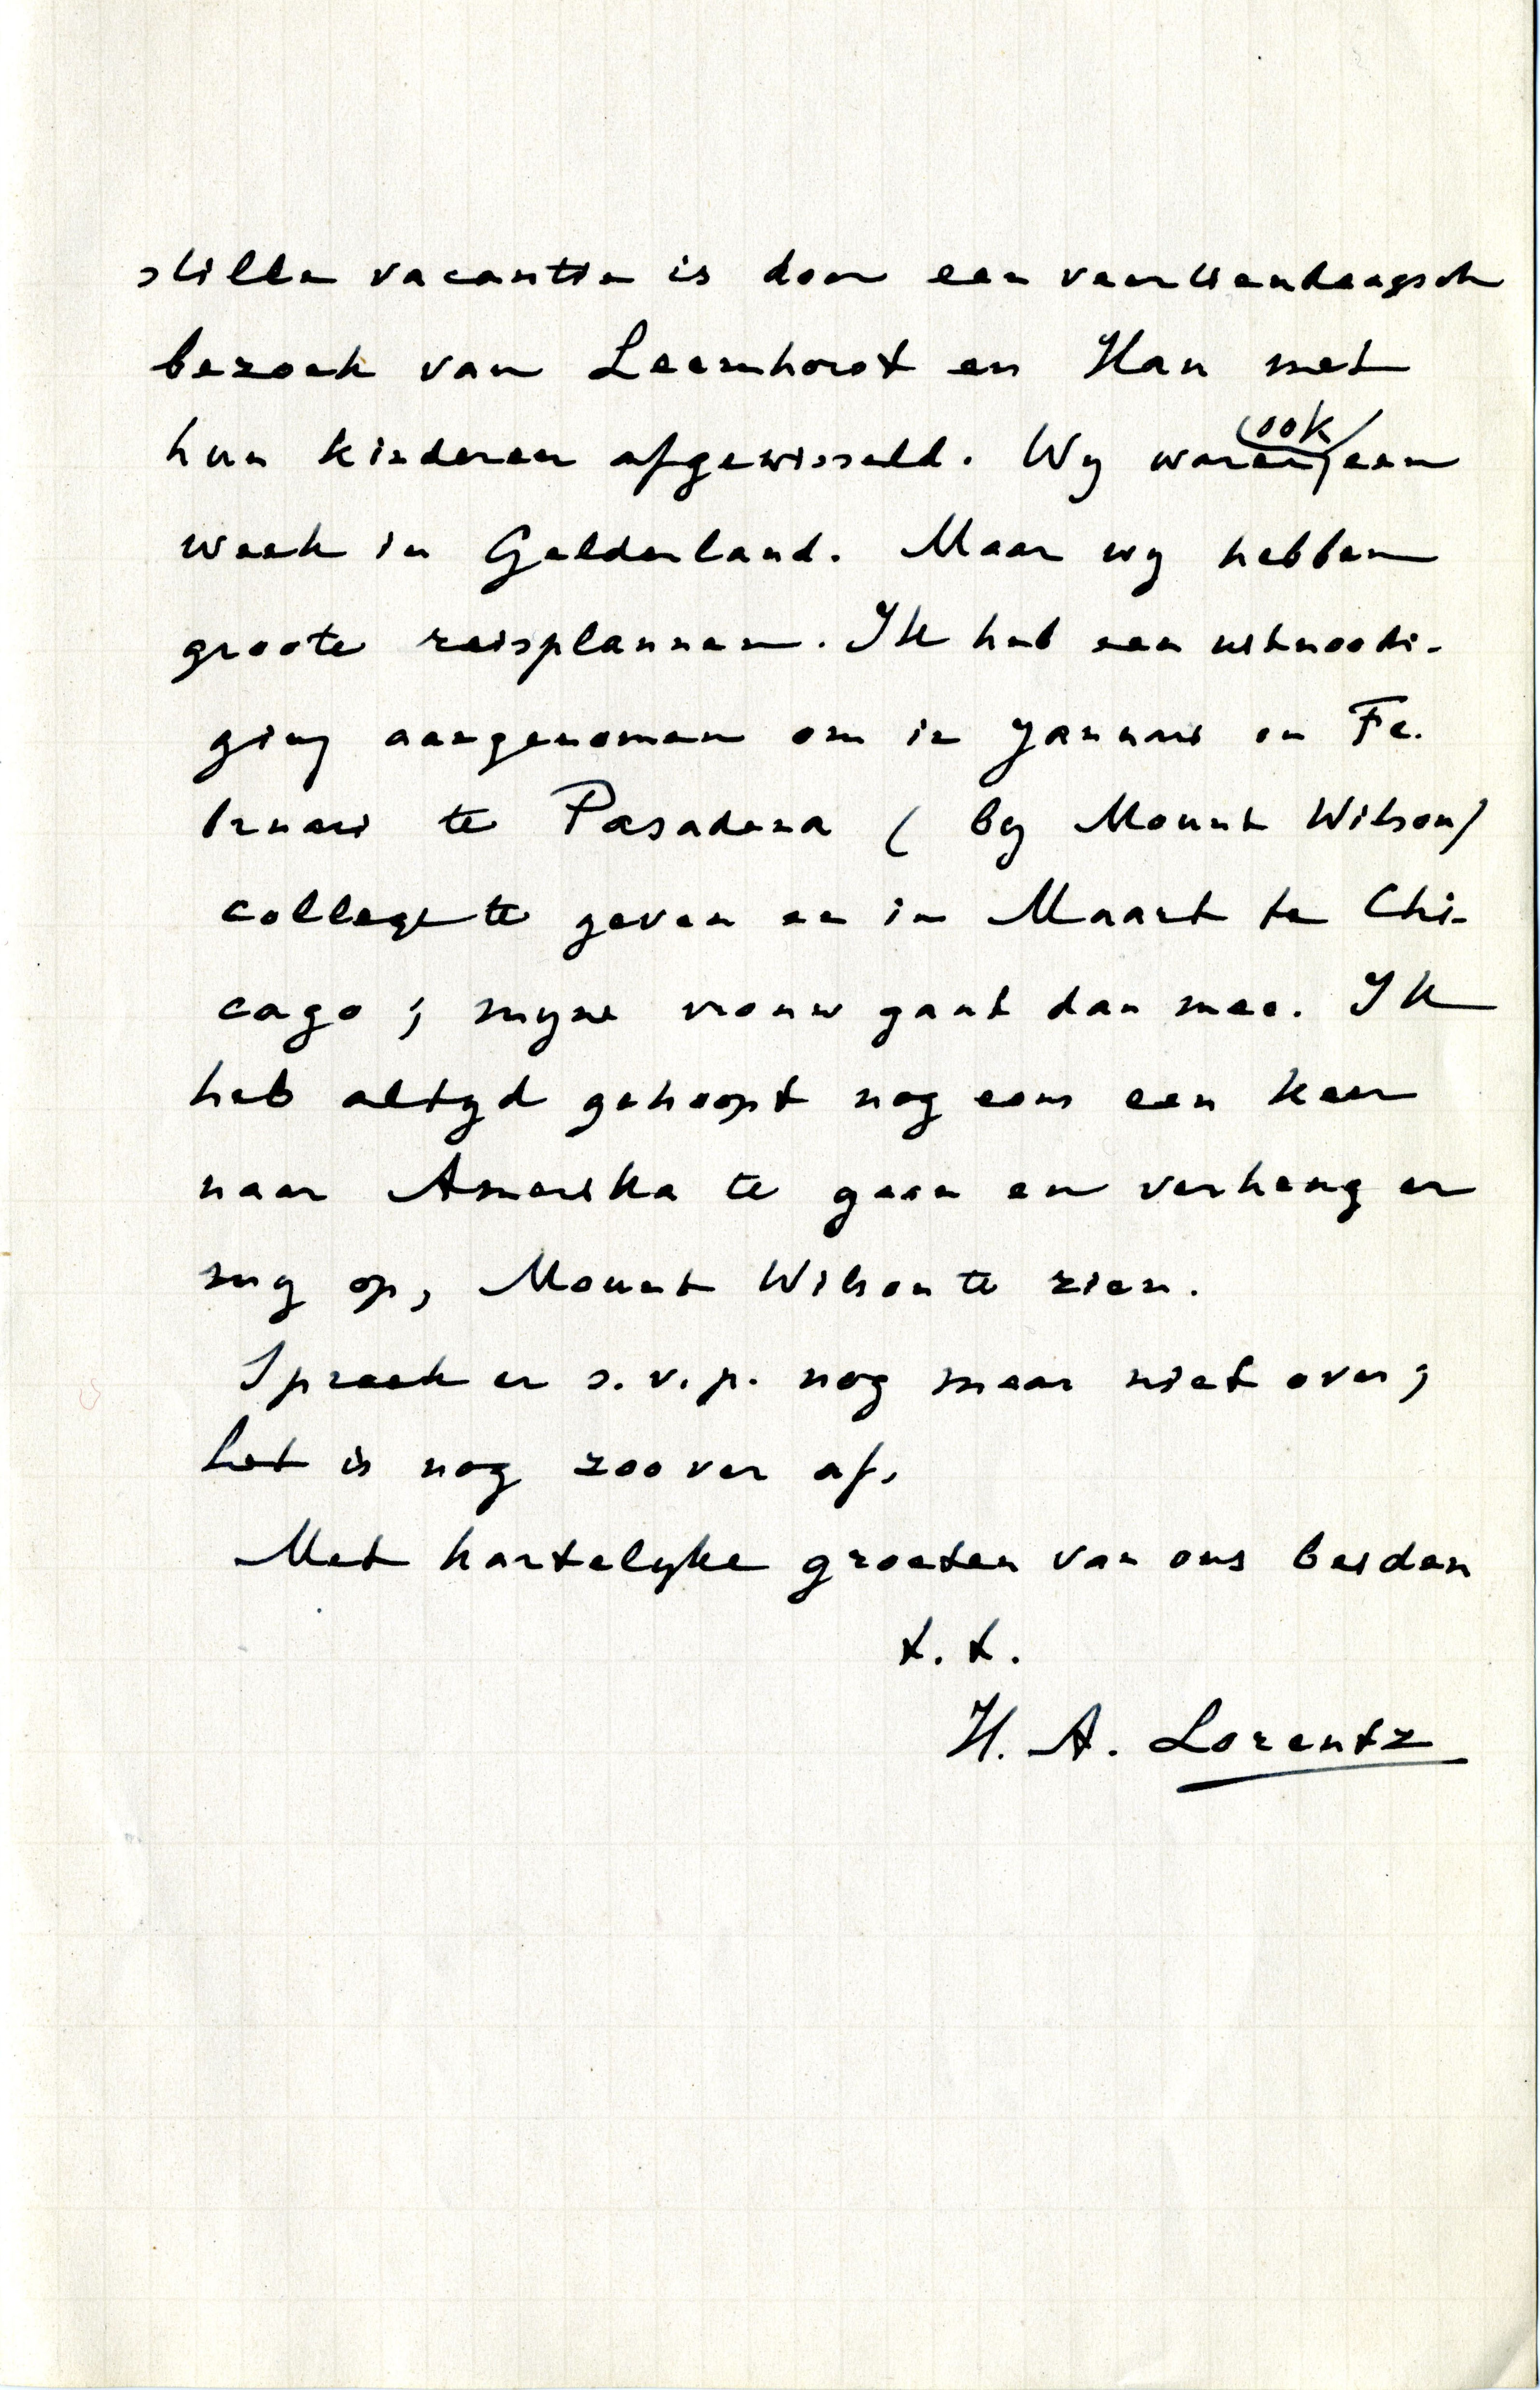 stille vacantie is door een veertiendaagsch
bezoek van Leemhorst en Han met
hun kinderen afgewisseld. Wy waren ook een
week in Gelderland. Maar wy hebben
groote reisplannen. Ik heb een uitnoodi-
ging aangenomen om in Januari en Fe-
bruari te Pasadena (by Mount Wilson)
college te geven en in Maart te Chi-
cago; myne vrouw gaat dan mee. Ik
heb altyd gehoopt nog eens een keer
naar Amerika te gaan en verheug er
my op, Mount Wilson te zien.
Spreek er s.v.p. nog maar niet over;
het is nog zoo ver af.
Met hartelyke groeten van ons beiden
t.t.
H. A. Lorentz